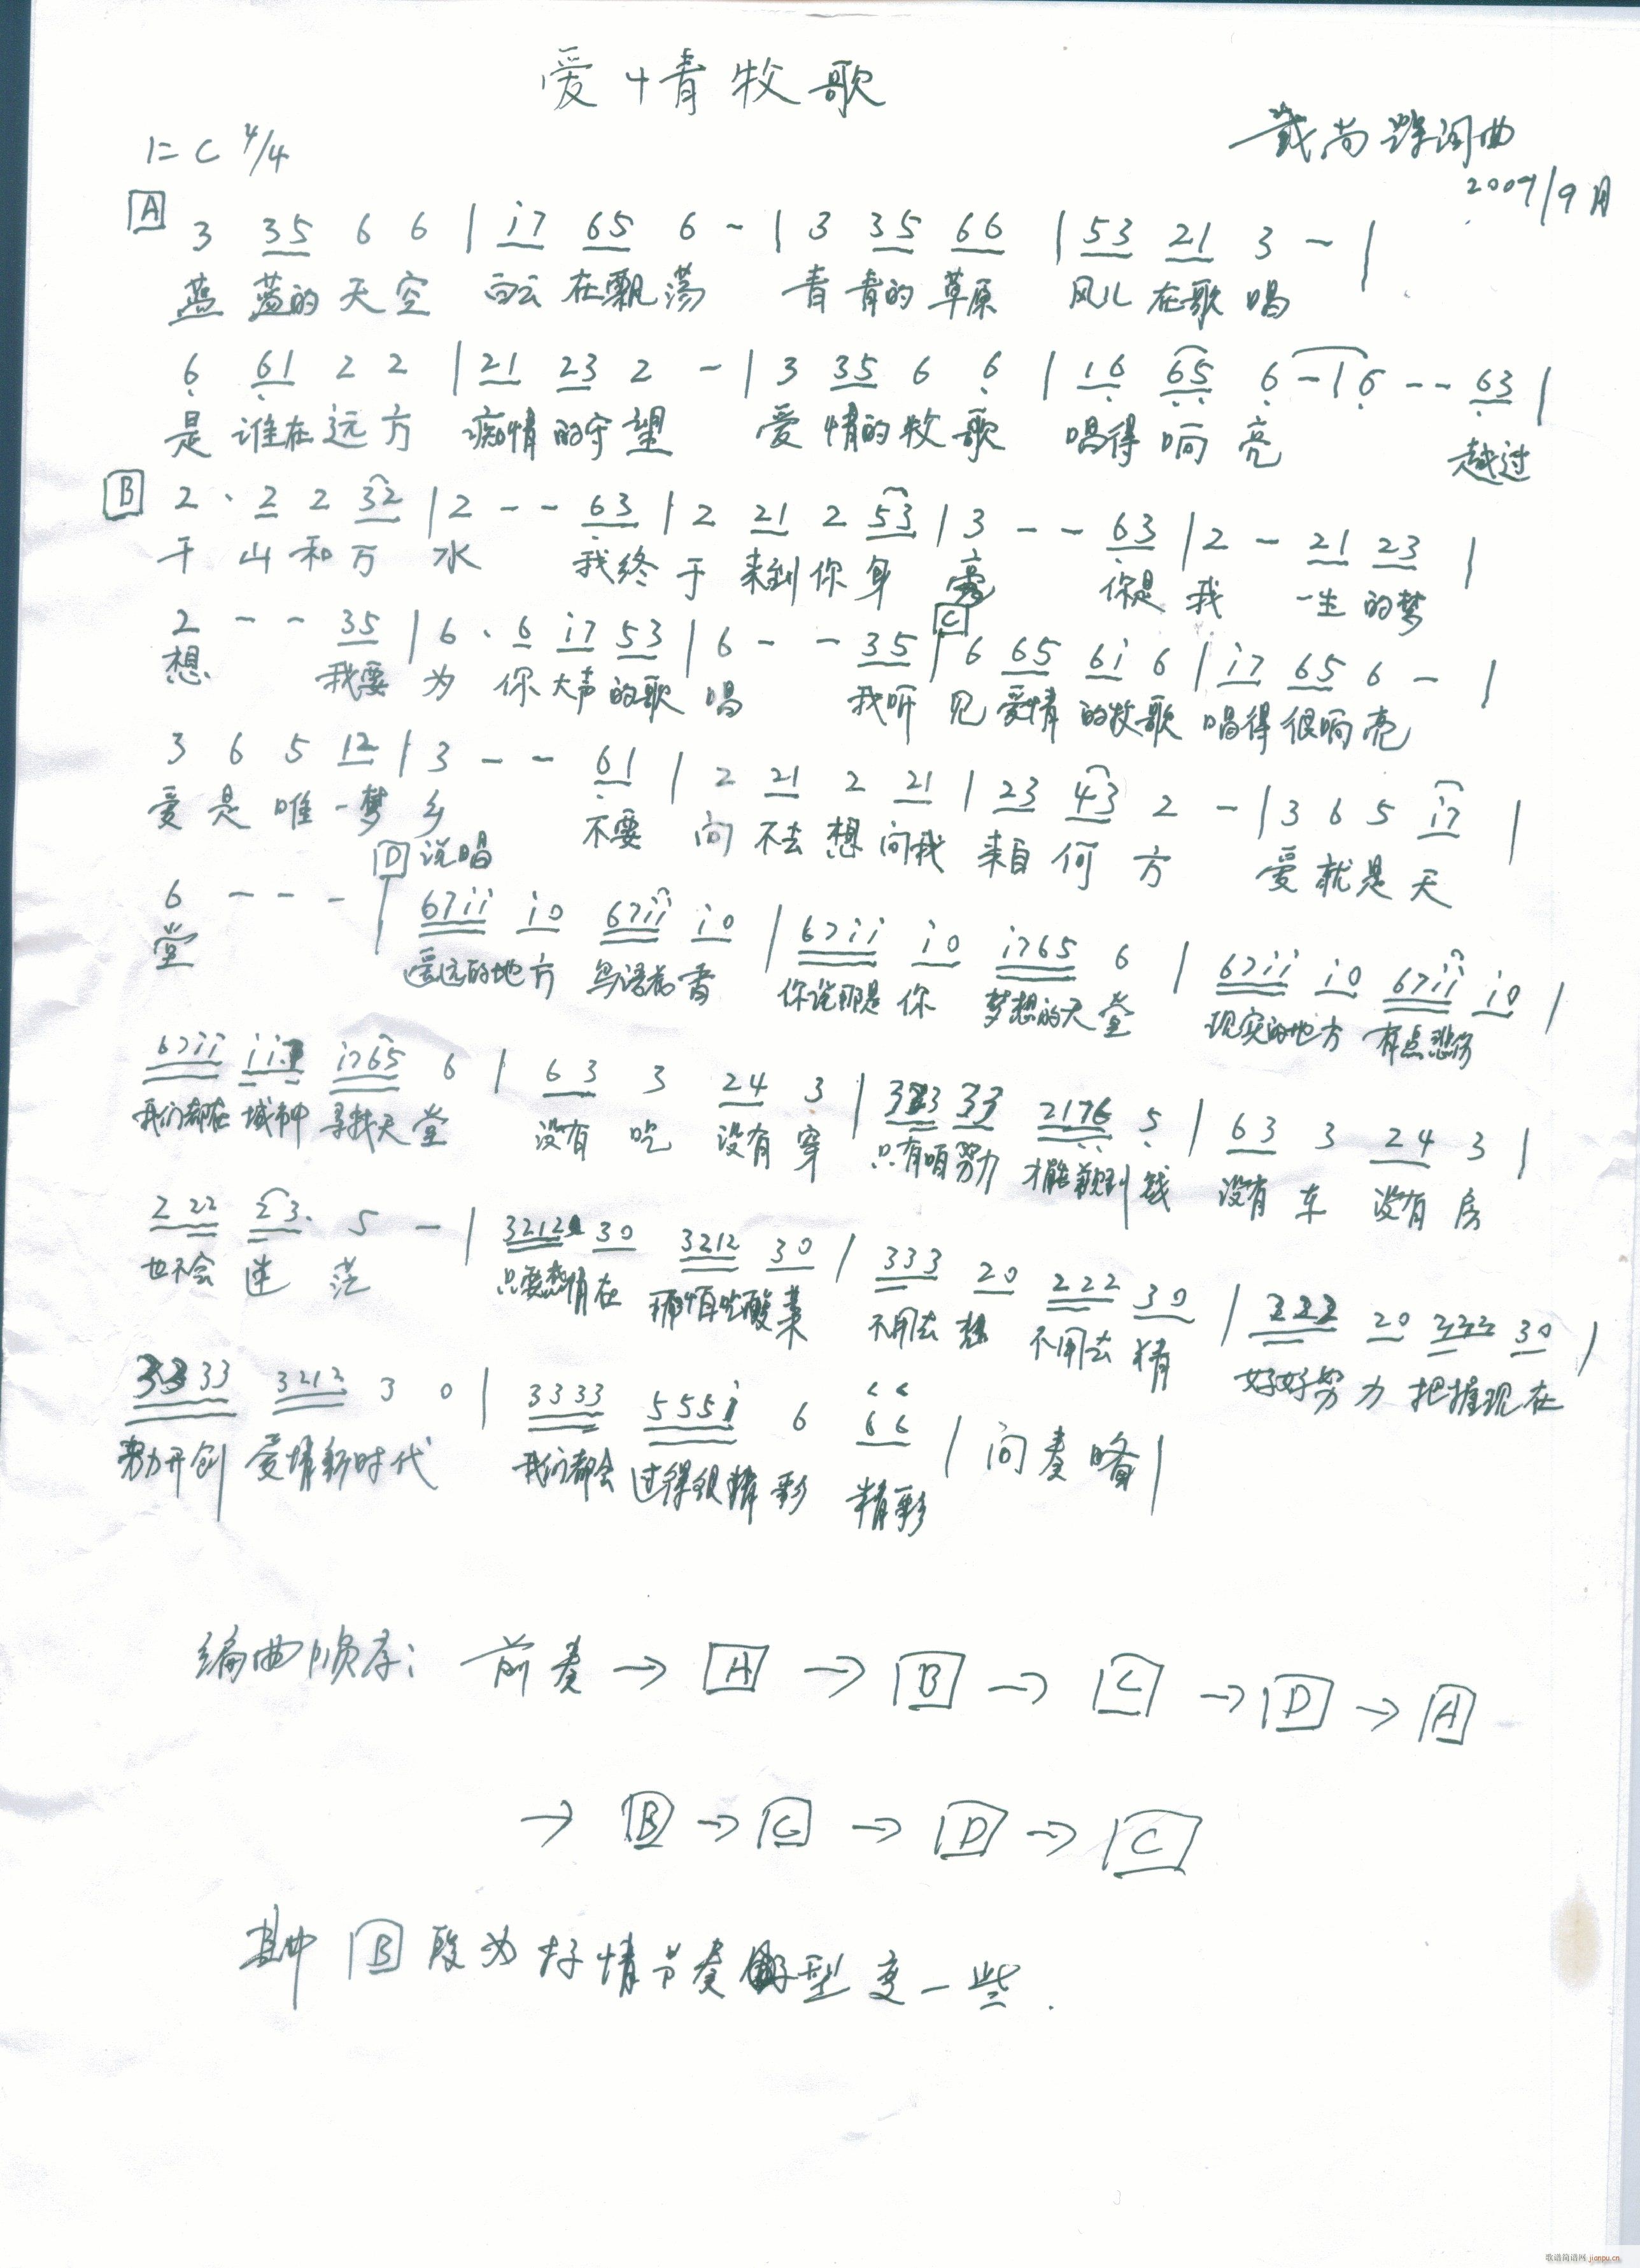 爱情牧歌
1=C 4/4
戴尚 词曲
2009/9月
A 3 35 6 6 | i7 65 6 - | 3 35 66 | 53 21 3 - |
蓝 蓝的 天 空 白云 在飘 荡 青 青的 草原 风儿 在歌 唱
6 61 2 2 | 21 23 2 - | 3 35 6 6 | 16 65 6 - | 6 - - 63 |
是 谁在 远 方 痴情 的守 望 爱 情的 牧 歌 唱得 响 亮 越过
B 2 · 2 2 32 | 2 - - 63 | 2 21 2 53 | 3 - - 63 | 2 - 21 23 |
千 山 和 万 水 我终 于 来到 你 身 旁 你是 我 一生 的梦
2 - - 35 | 6 · 6 i7 53 | 6 - - 35 | C 6 65 6i 6 | i7 65 6 - |
想 我要 为 你 大声 的歌 唱 我听 见 爱情 的牧 歌 唱得 很响 亮
3 6 5 12 | 3 - - 61 | 2 21 2 21 | 23 43 2 - | 3 6 5 i7 |
爱 是 唯 一梦 乡 不要 问 不去 想 问我 来自 何 方 爱 就 是 天
6 - - - | D 说唱 67ii i0 67ii i0 | 67ii i0 i765 6 | 67ii i0 67ii i0 |
堂 遥远的地 方 鸟语花 香 你说那是 你 梦想的天 堂 现实的地 方 有点悲伤
67ii ii i765 6 | 63 3 24 3 | 333 33 2176 5 | 63 3 24 3 |
我们都在 城市中 寻找天 堂 没有 吃 没有 穿 只有咱 努力 才能赚到 钱 没有 车 没有 房
2 22 23· 5 - | 3212 30 3212 30 | 333 20 222 30 | 222 20 222 30 |
也不会 迷 茫 只要感情 在 哪怕吃酸 菜 不用去 想 不用去 猜 好好努 力 把握现 在
3333 3212 3 0 | 3333 555i 6 66 | 间奏略 |
努力开创 爱情新时 代 我们都会 过得很精 彩 精彩
编曲顺序: 前奏 → A → B → C → D → A
→ B → C → D → C
其中 B 段为抒情节奏 型变一些.
歌谱简谱网 jianpu.cn